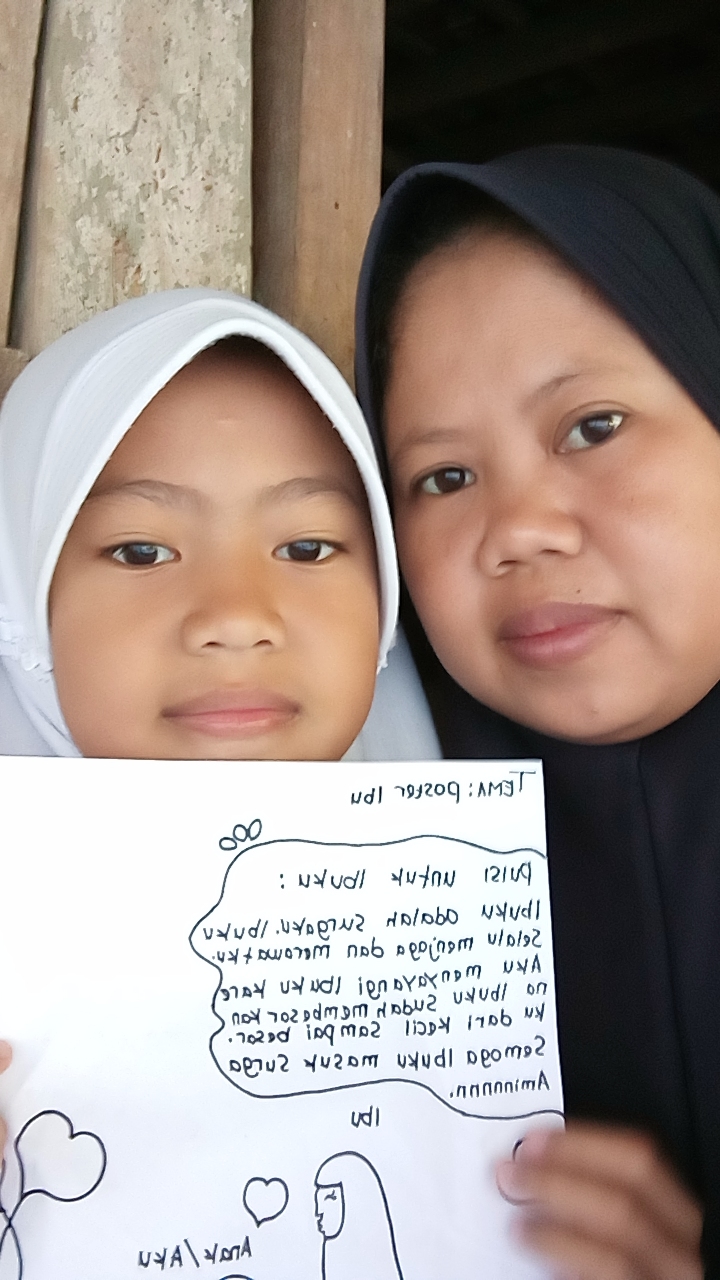 TEMA: poster Ibu
puisi untuk Ibuku :
Ibuku adalah surgaku. Ibuku
selalu menjaga dan merawatku.
Aku menyayangi Ibuku kare
na Ibuku sudah membesar kan
ku dari kecil sampai besar.
Semoga Ibuku masuk surga
Aminnnnn.
Ibu
Anak/Aku